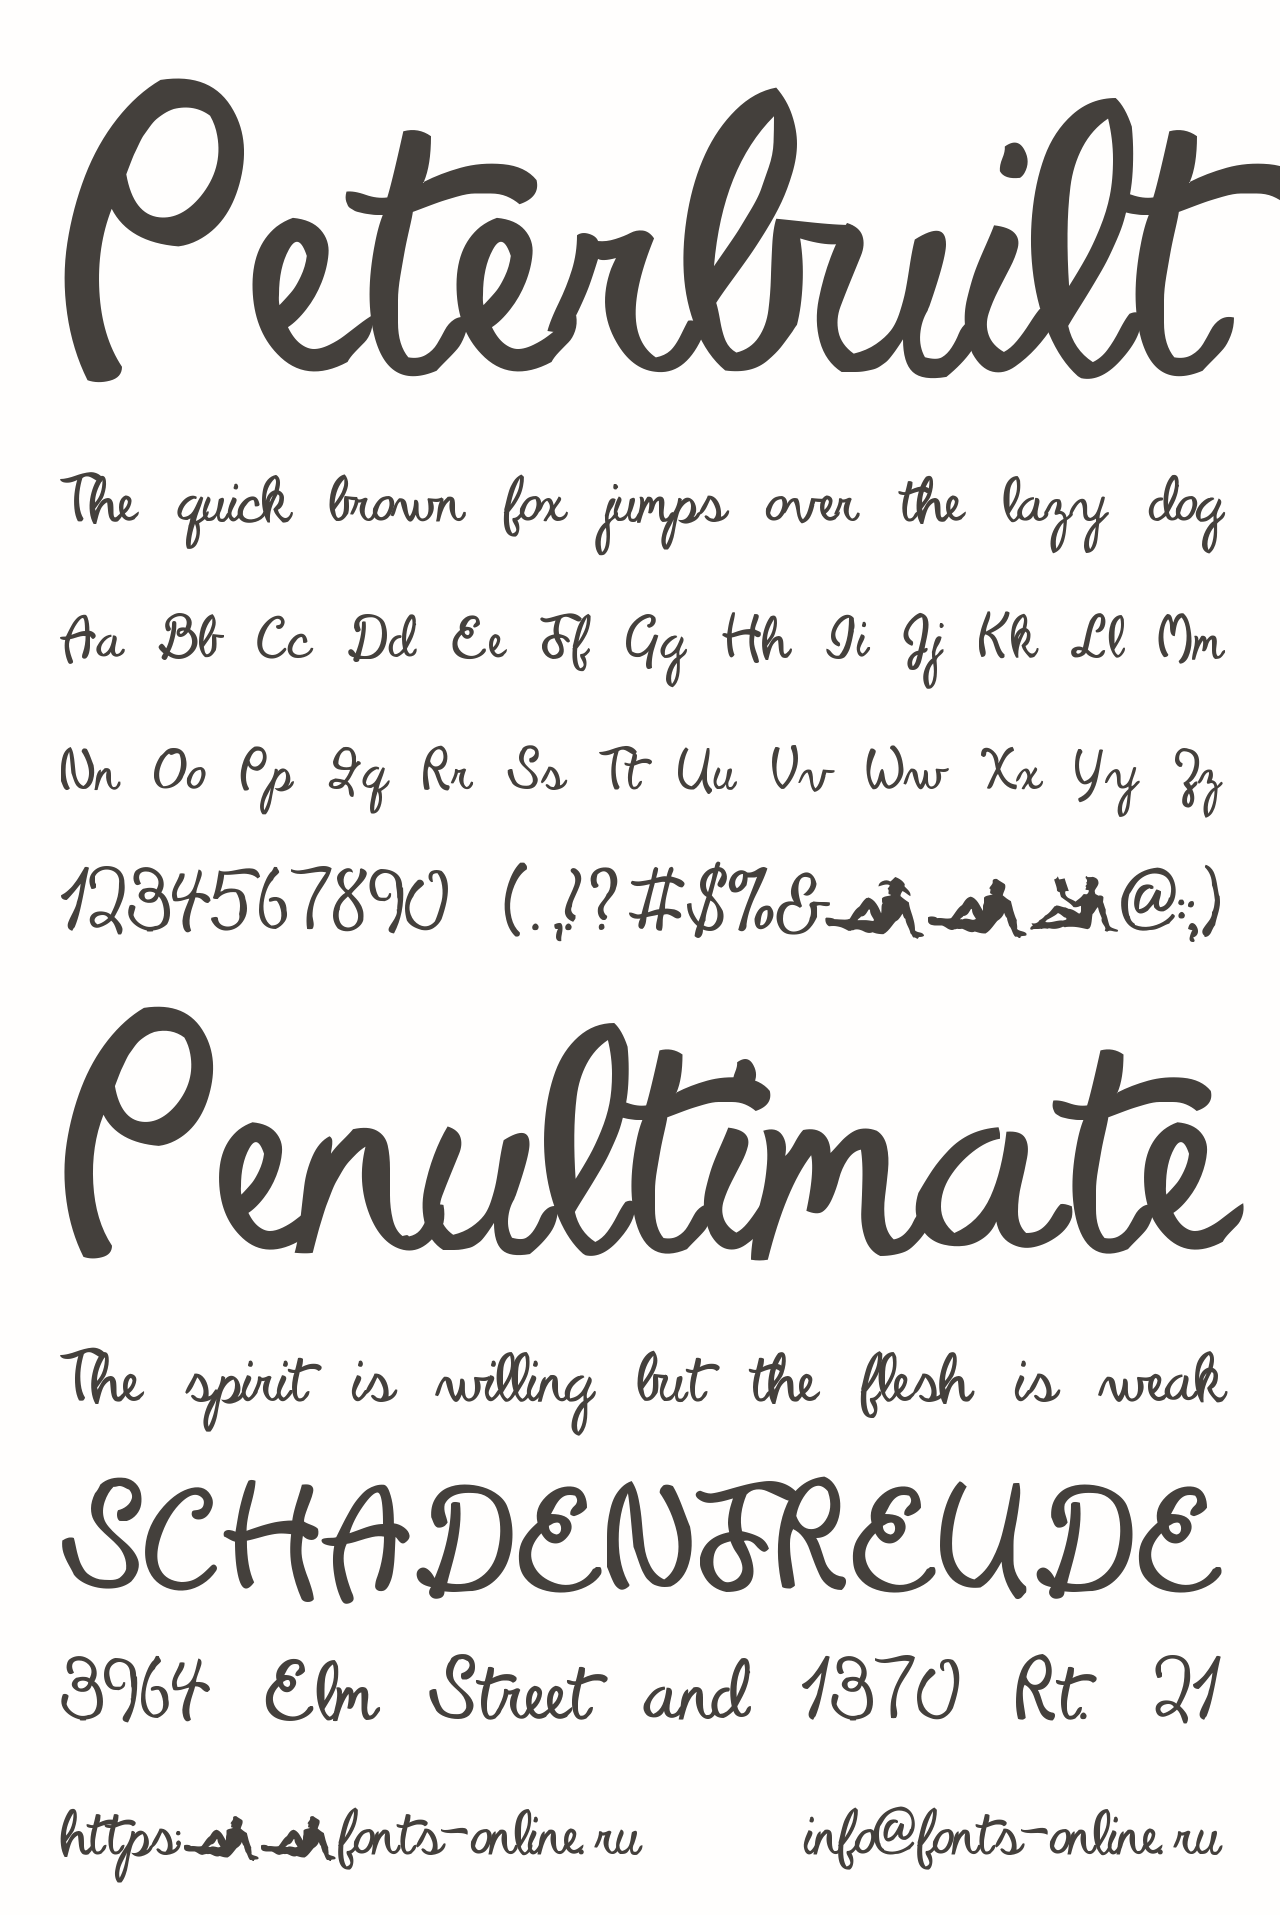 Peterbuilt
The quick brown fox jumps over the lazy dog
Aa Bb Cc Dd Ee Ff Gg Hh Ii Jj Kk Ll Mm
Nn Oo Pp Qq Rr Ss Tt Uu Vv Ww Xx Yy Zz
1234567890 (.,!?#$%&@:;)
Penultimate
The spirit is willing but the flesh is weak
SCHADENFREUDE
3964 Elm Street and 1370 Rt. 21
https:fonts-online.ru info@fonts-online.ru